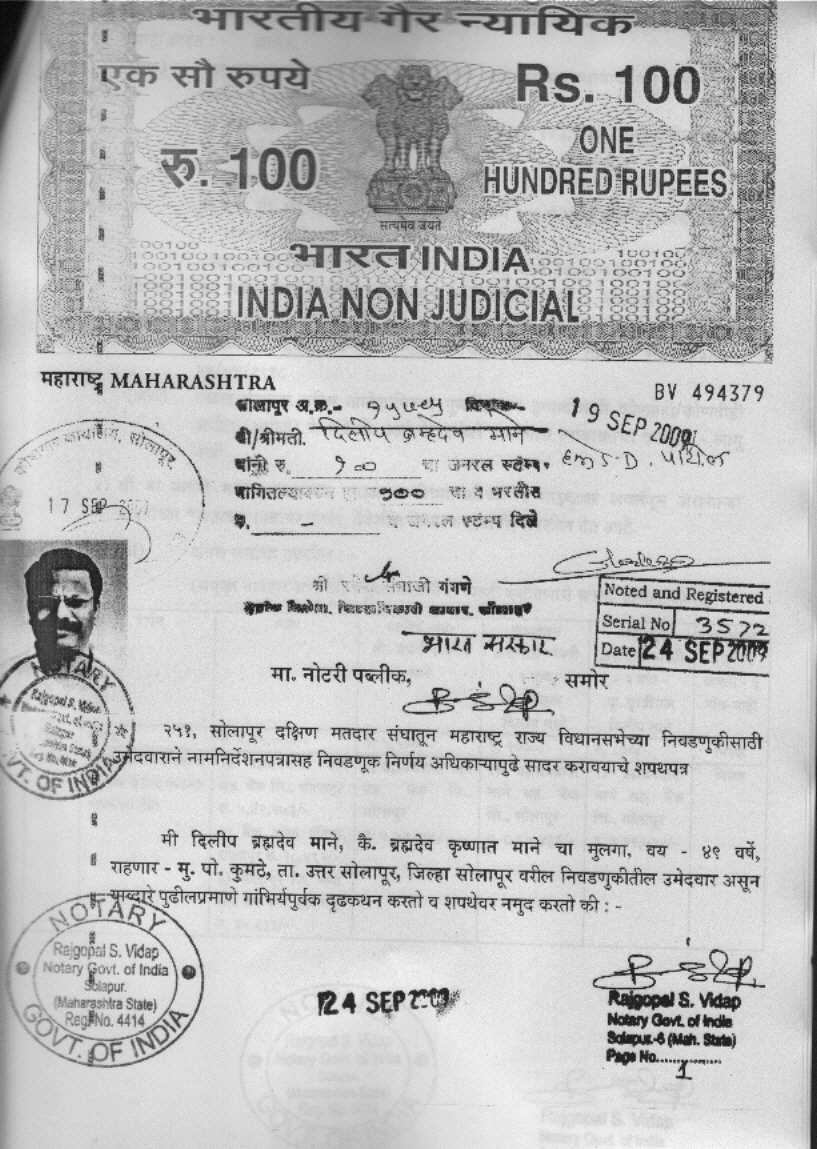 भारतीय गैर न्यायिक
एक सौ रुपये
Rs. 100
रु. 100
ONE
HUNDRED RUPEES
सत्यमेव जयते
भारत INDIA
INDIA NON JUDICIAL
महाराष्ट्र MAHARASHTRA
BV 494379
सोलापूर अ.क्र.- दिनांक-
19 SEP 2009
श्री/श्रीमती. दिलीप ब्रम्हदेव माने
यांनी रु. १०० चा जनरल स्टॅम्प
मागितल्यावरून १०० चा व भरतीस
रु. - च जनरल स्टॅम्प दिले
कोषागार कार्यालय, सोलापूर
17 SEP
श्री संभाजी गंगणे
Noted and Registered
Serial No 3572
Date 24 SEP 2009
भारत सरकार
मा. नोटरी पब्लीक, समोर
NOTARY
Rajgopal S. Vidap
GOVT. OF INDIA
२५१, सोलापूर दक्षिण मतदार संघातून महाराष्ट्र राज्य विधानसभेच्या निवडणुकीसाठी
उमेदवाराने नामनिर्देशनपत्रासह निवडणूक निर्णय अधिकाऱ्यापुढे सादर करावयाचे शपथपत्र
मी दिलीप ब्रह्मदेव माने, कै. ब्रह्मदेव कृष्णात माने चा मुलगा, वय - ४९ वर्षे,
राहणार - मु. पो. कुमठे, ता. उत्तर सोलापूर, जिल्हा सोलापूर वरील निवडणुकीतील उमेदवार असून
याव्दारे पुढीलप्रमाणे गांभिर्यपुर्वक दृढकथन करतो व शपथेवर नमुद करतो की : -
NOTARY
Rajgopal S. Vidap
Notary Govt. of India
Solapur.
(Maharashtra State)
Reg. No. 4414
GOVT. OF INDIA
24 SEP 2009
Rajgopal S. Vidap
Notary Govt. of India
Solapur.-6 (Mah. State)
Page No...............
1